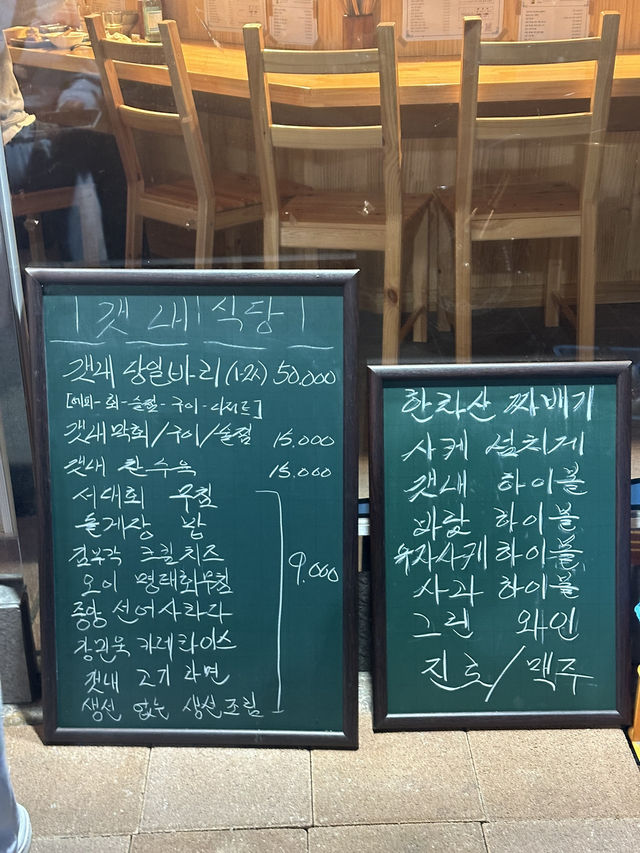 갯내 식당
갯내 당일바리 (1-2人) 50,000
[에피-회-술찜-구이-디저트]
갯내막회/구이/술찜 15,000
갯내 한 수육 15,000
서대회 무침
돌게장 밥
김부각 크림치즈
오이 명태회무침
중앙 선어사라다
장민욱 카레라이스
갯내 고기 라면
생선 없는 생선조림
9,000
한라산 짜배기
사케 설치게
갯내 하이볼
바랑 하이볼
유자사케 하이볼
사과 하이볼
그랜 와인
진로/맥주